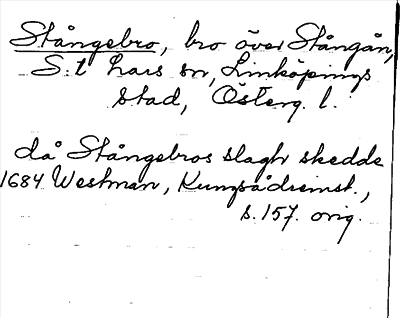 Stångebro, bro över Stångån,
S:t Lars sn, Linköpings
stad, Österg. l.
då Stångebros slagh skedde
1684 Westman, Kungsådremst.,
s. 157. orig.